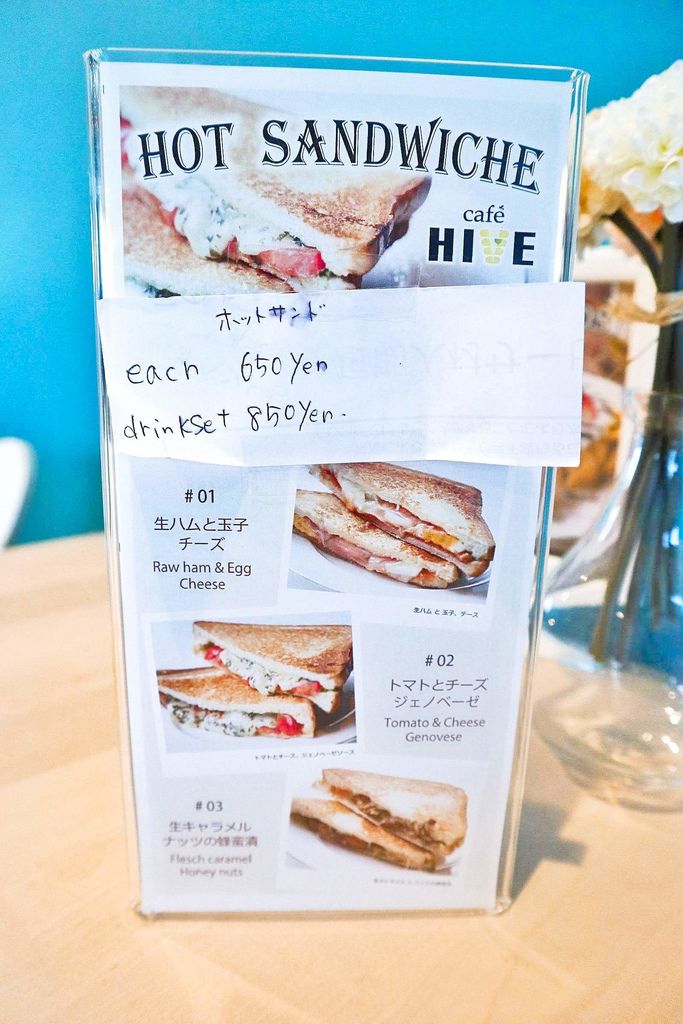 HOT SANDWICHE
café
HIVE
ホットサンド
each 650Yen
drinkset 850Yen.
#01
生ハムと玉子
チーズ
Raw ham & Egg
Cheese
生ハム と 玉子、チーズ
#02
トマトとチーズ
ジェノベーゼ
Tomato & Cheese
Genovese
トマトとチーズ、ジェノベーゼソース
#03
生キャラメル
ナッツの蜂蜜漬
Flesch caramel
Honey nuts